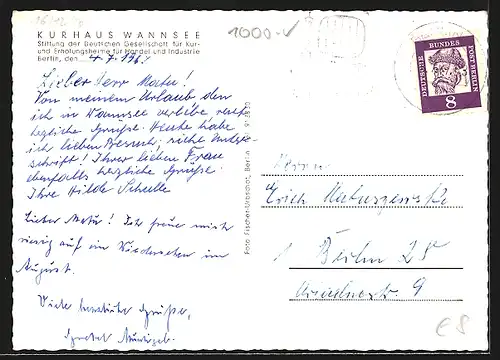 1000.-
KURHAUS WANNSEE
Stiftung der Deutschen Gesellschaft für Kur-
und Erholungsheime für Handel und Industrie
Berlin, den 4.7.196
Lieber Herr Matu!
Von meinem Urlaub den
ich in Wannsee verlebe recht
herzliche Grüße. Heute habe
ich lieben Besuch; siehe Unter-
schrift! Ihrer lieben Frau
ebenfalls herzliche Grüße.
Ihre Hilde Schulte
Lieber Matu! Ich freue mich
riesig auf ein Wiedersehen im
August.
Viele herzliche Grüße,
Foto Fischer-Urbschat, Berlin
DEUTSCHE BUNDES
POST BERLIN
8
Herrn
Erich
1 Berlin 25
9
€8